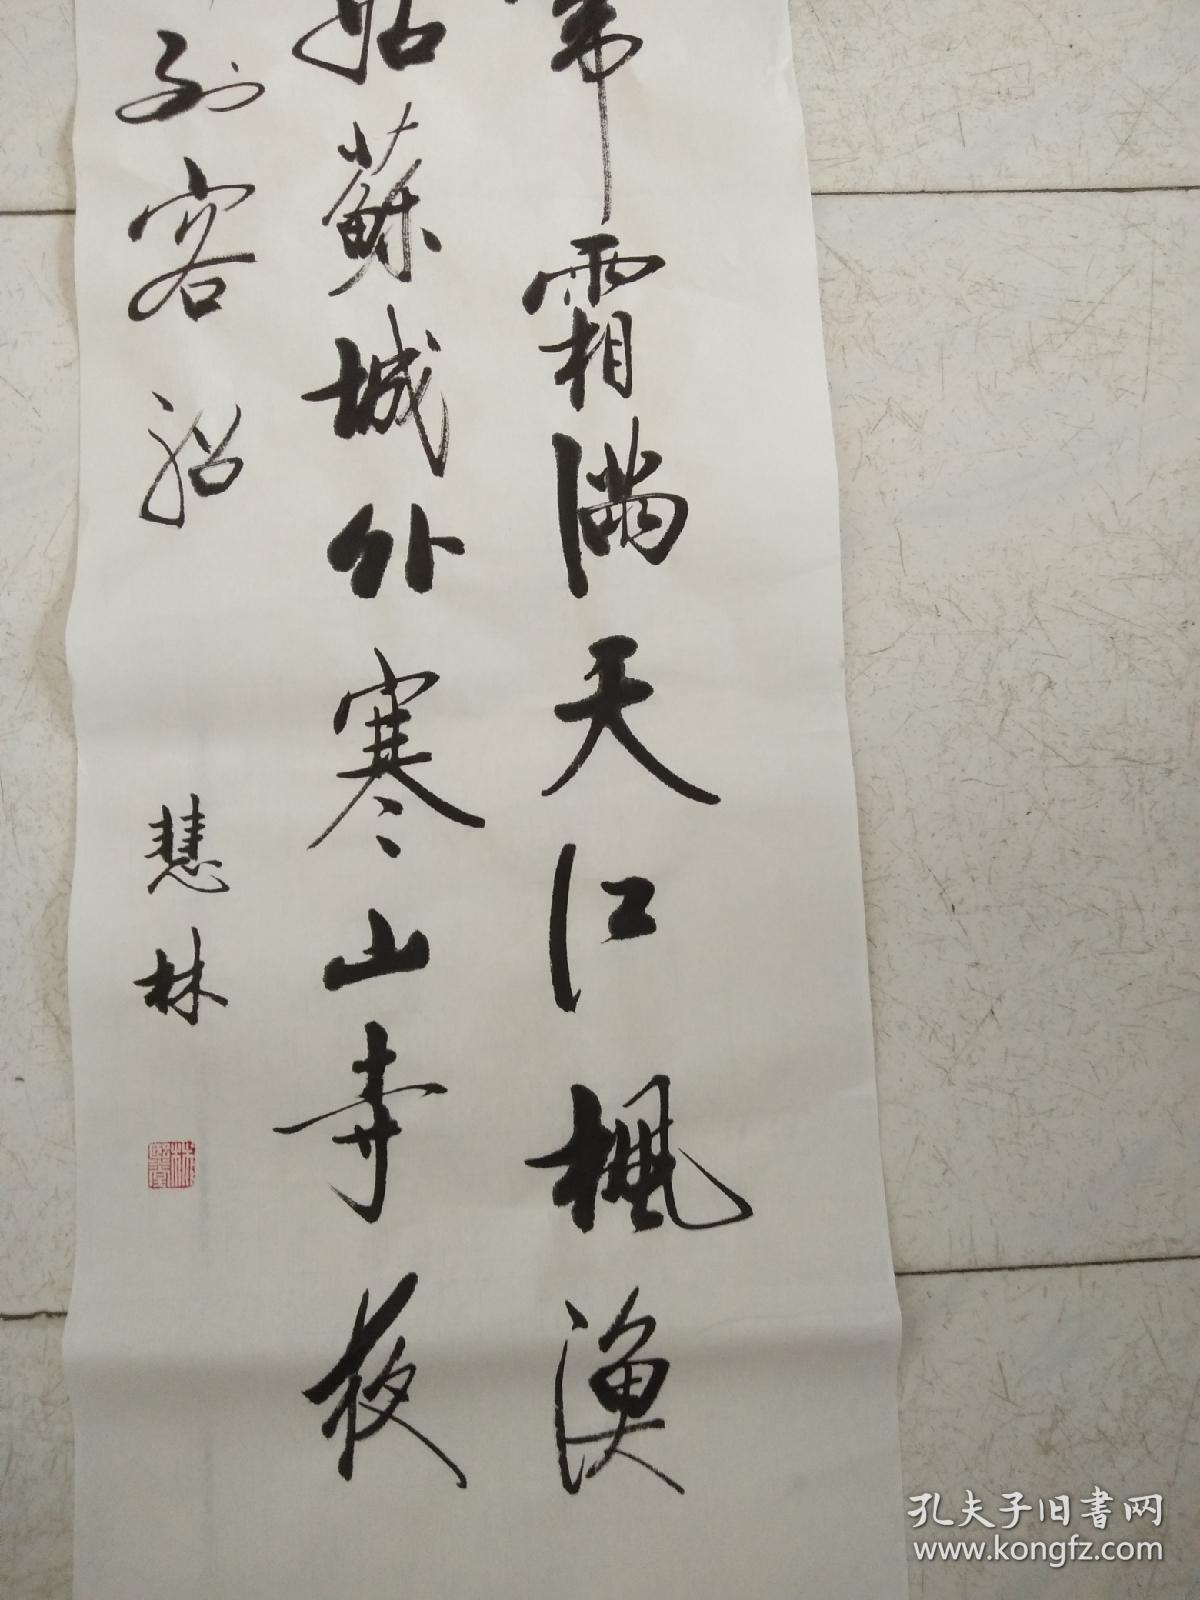 啼霜满天江楓渔
姑蘇城外寒山寺夜
到客船
慧林
孔夫子旧書网
www.kongfz.com